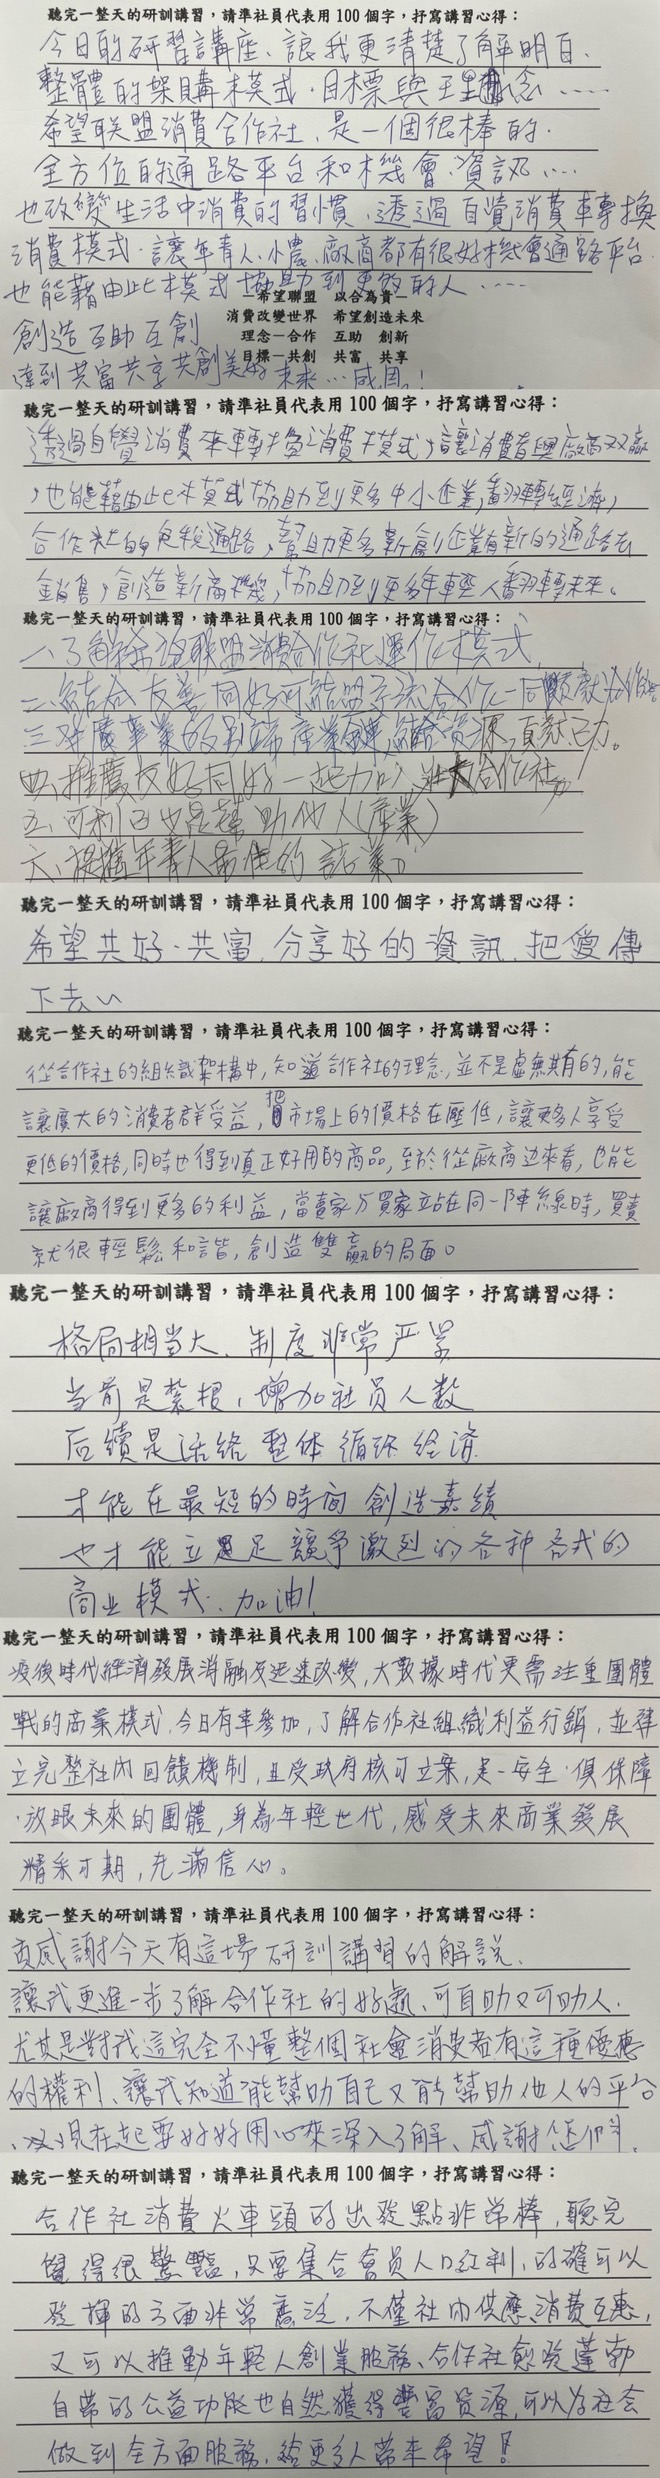 聽完一整天的研訓講習，請準社員代表用 100 個字，抒寫講習心得：
今日的研習講座、讓我更清楚了解明白、
整體的架購模式．目標與理念……
希望联盟消費合作社、是一個很棒的．
全方位的通路平台和機會、資訊……
也改變生活中消費的習慣、透過自覺消費來轉換
消費模式．讓年青人、小農、廠商都有很好機會通路平台．
也能藉由此模式協助到更多的人……
—希望聯盟 以合為貴—
消費改變世界 希望創造未來
創造互助互創
理念—合作 互助 創新
目標—共創 共富 共享
達到共富共享共創美好未來…感恩！
聽完一整天的研訓講習，請準社員代表用 100 個字，抒寫講習心得：
透過自覺消費來轉換消費模式，讓消費者與廠商双贏
，也能藉由此模式協助到更多中小企業，翻轉經濟，
合作社的免稅通路，幫助更多新創企業有新的通路去
銷售，創造新商機，協助到更多年輕人翻轉未來。
聽完一整天的研訓講習，請準社員代表用 100 個字，抒寫講習心得：
一、了解希望联盟消費合作社運作模式
二、結合友善同好可結盟系統合作一同貢獻合作社
三、發廣事業的別端產業鏈，結合資源，貢獻己力。
四、推薦友好同好一起加入、壯大合作社。
五、可利己也是幫助他人(產業)
六、提攜年青人最佳的
聽完一整天的研訓講習，請準社員代表用 100 個字，抒寫講習心得：
希望共好．共富，分享好的資訊，把愛傳
下去
聽完一整天的研訓講習，請準社員代表用 100 個字，抒寫講習心得：
從合作社的組織架構中，知道合作社的理念，並不是虛無共有的，能
讓廣大的消費者群受益，把市場上的價格在壓低，讓更多人享受
更低的價格，同時也得到真正好用的商品，至於從廠商边來看，也能
讓廠商得到更多的利益，當賣家与買家立站在同一陣線時，買賣
就很輕鬆和諧，創造雙贏的局面。
聽完一整天的研訓講習，請準社員代表用 100 個字，抒寫講習心得：
格局相当大、制度非常严谨
当前是紮根，增加社员人数
后續是活络整体循环经済
才能在最短的時间創造嘉績
也才能立足競爭激烈的各种各式的
商业模式．加油！
聽完一整天的研訓講習，請準社員代表用 100 個字，抒寫講習心得：
疫後時代經濟發展消融及迅速改變，大數據時代更需注重團體
戰的商業模式，今日有幸參加，了解合作社組織利益行銷，並建
立完整社內回饋機制，且受政府核可立案，是一安全．俱保障
．放眼未來的團體，身為年輕世代，感受未來商業發展
精采可期，充滿信心。
聽完一整天的研訓講習，請準社員代表用 100 個字，抒寫講習心得：
真感謝今天有這場研訓講習的解說、
讓我更進一步了解合作社的好處、可自助又可助人．
尤其是對我這完全不懂整個社會消費者有這種優惠
的權利、讓我知道能幫助自己又能幫助他人的平台
、從現在起要好好用心來深入了解、感謝您們．
聽完一整天的研訓講習，請準社員代表用 100 個字，抒寫講習心得：
合作社消費火車頭的出發點非常棒，聽完
覺得很驚豔，又要集合會員人口紅利，的確可以
發揮的方面非常廣泛，不僅社內供應、消費互惠，
又可以推動年輕人創業服務、合作社愈發蓬勃
自帶的公益功能也自然獲得豐富資源，可以为社会
做到全方面服務，给更多人带来希望！